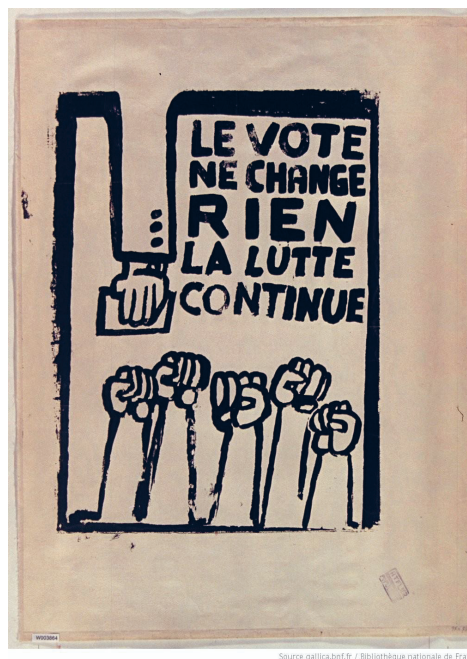 LE VOTE
NE CHANGE
RIEN
LA LUTTE
CONTINUE
W003884
Source gallica.bnf.fr / Bibliothèque nationale de Fra